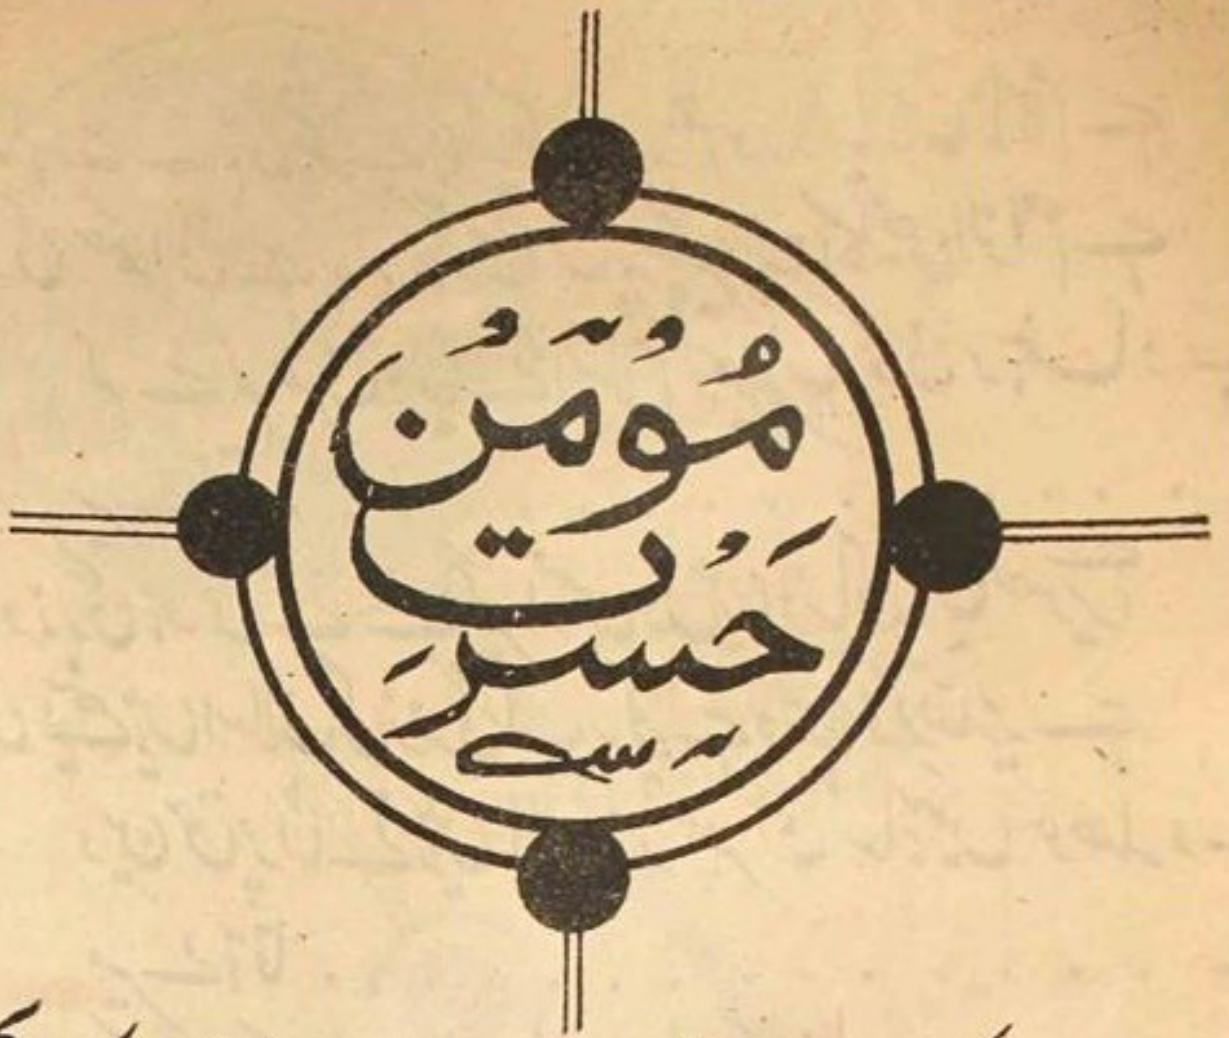 مُوْمنْ
حَسْرتَ